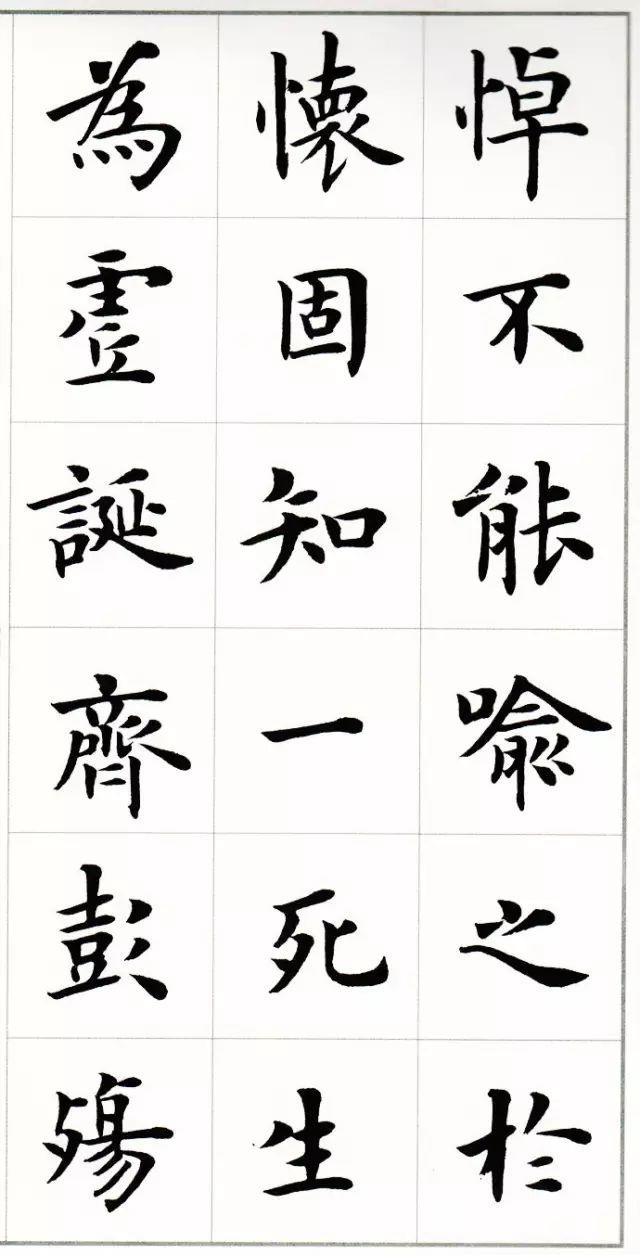 悼不能喻之於
懷固知一死生
為虛誕齊彭殤